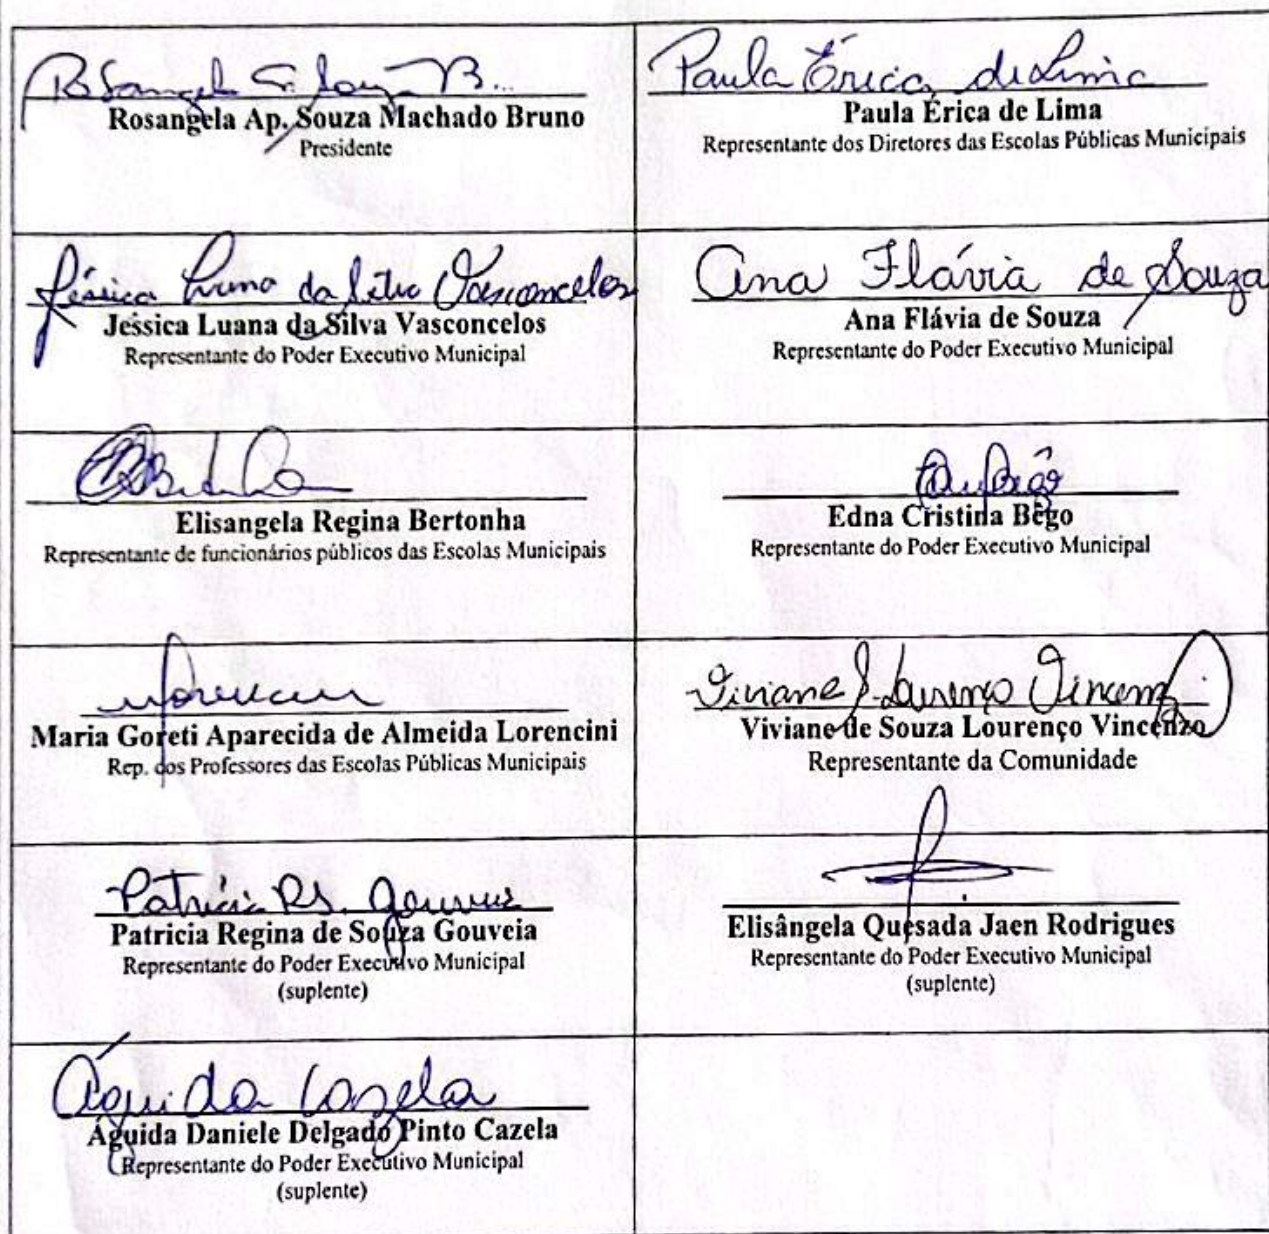 Rosangela S. Souza B...
Rosangela Ap. Souza Machado Bruno
Presidente
Paula Érica de Lima
Paula Érica de Lima
Representante dos Diretores das Escolas Públicas Municipais
Jéssica Luana da Silva Vasconcelos
Jessica Luana da Silva Vasconcelos
Representante do Poder Executivo Municipal
Ana Flávia de Souza
Ana Flávia de Souza
Representante do Poder Executivo Municipal
Elisangela Regina Bertonha
Representante de funcionários públicos das Escolas Municipais
Edna Cristina Bêgo
Representante do Poder Executivo Municipal
Maria Goreti Aparecida de Almeida Lorencini
Rep. dos Professores das Escolas Públicas Municipais
Viviane S. Lourenço Vincenzo
Viviane de Souza Lourenço Vincenzo
Representante da Comunidade
Patricia RS. Gouveia
Patricia Regina de Souza Gouveia
Representante do Poder Executivo Municipal
(suplente)
Elisângela Quesada Jaen Rodrigues
Representante do Poder Executivo Municipal
(suplente)
Águida Cazela
Águida Daniele Delgado Pinto Cazela
Representante do Poder Executivo Municipal
(suplente)